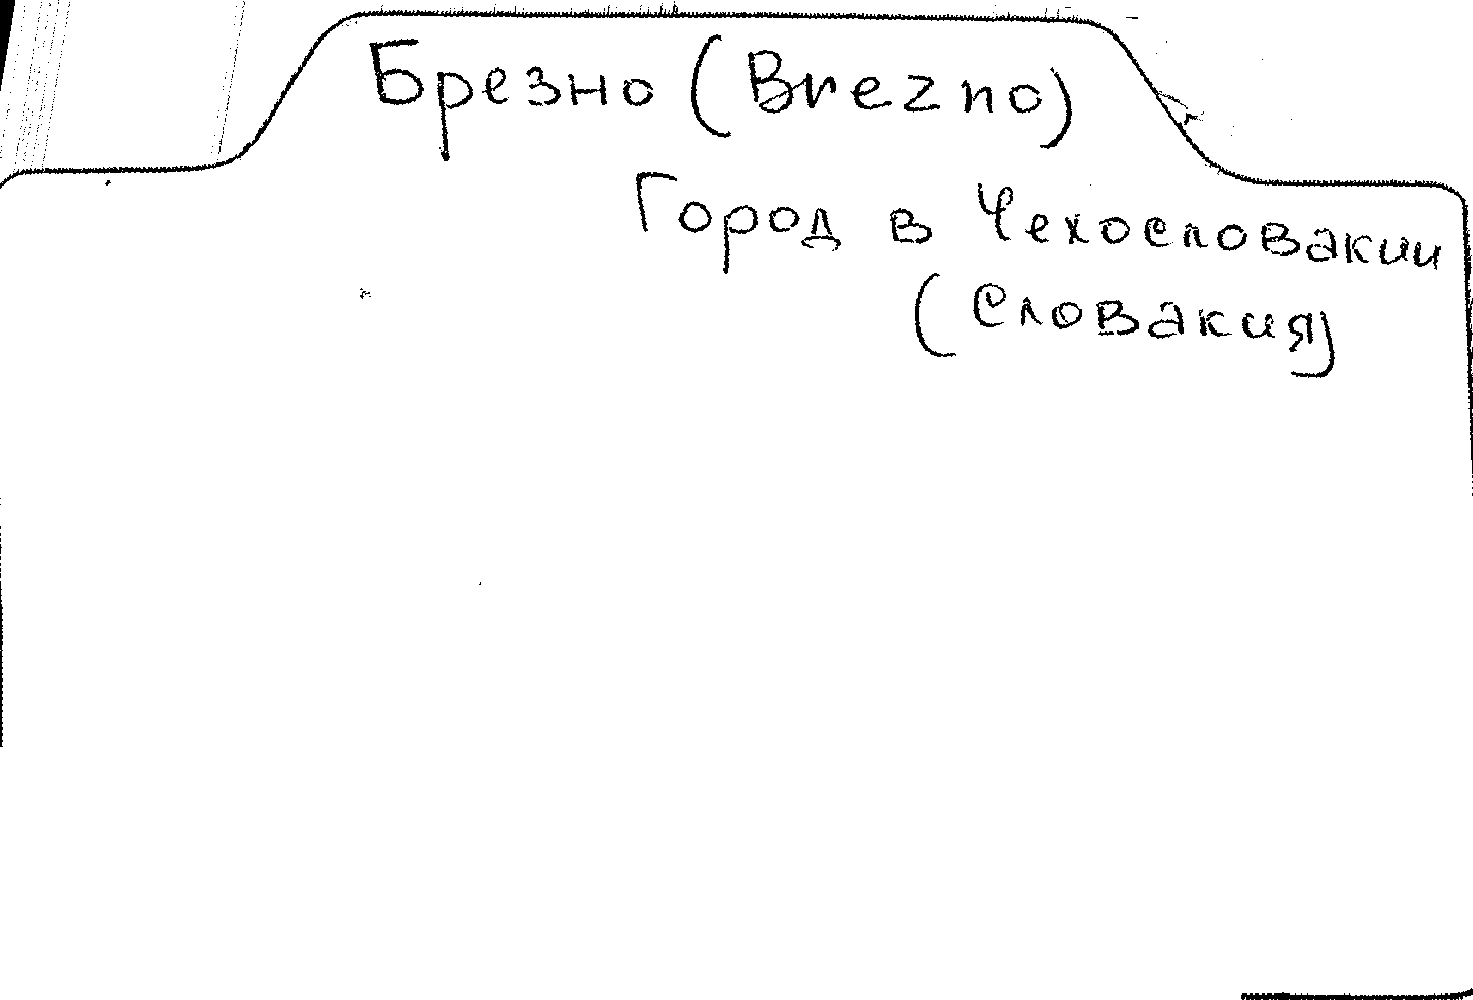 Брезно (Brezno)
Город в Чехословакии
(Словакия)